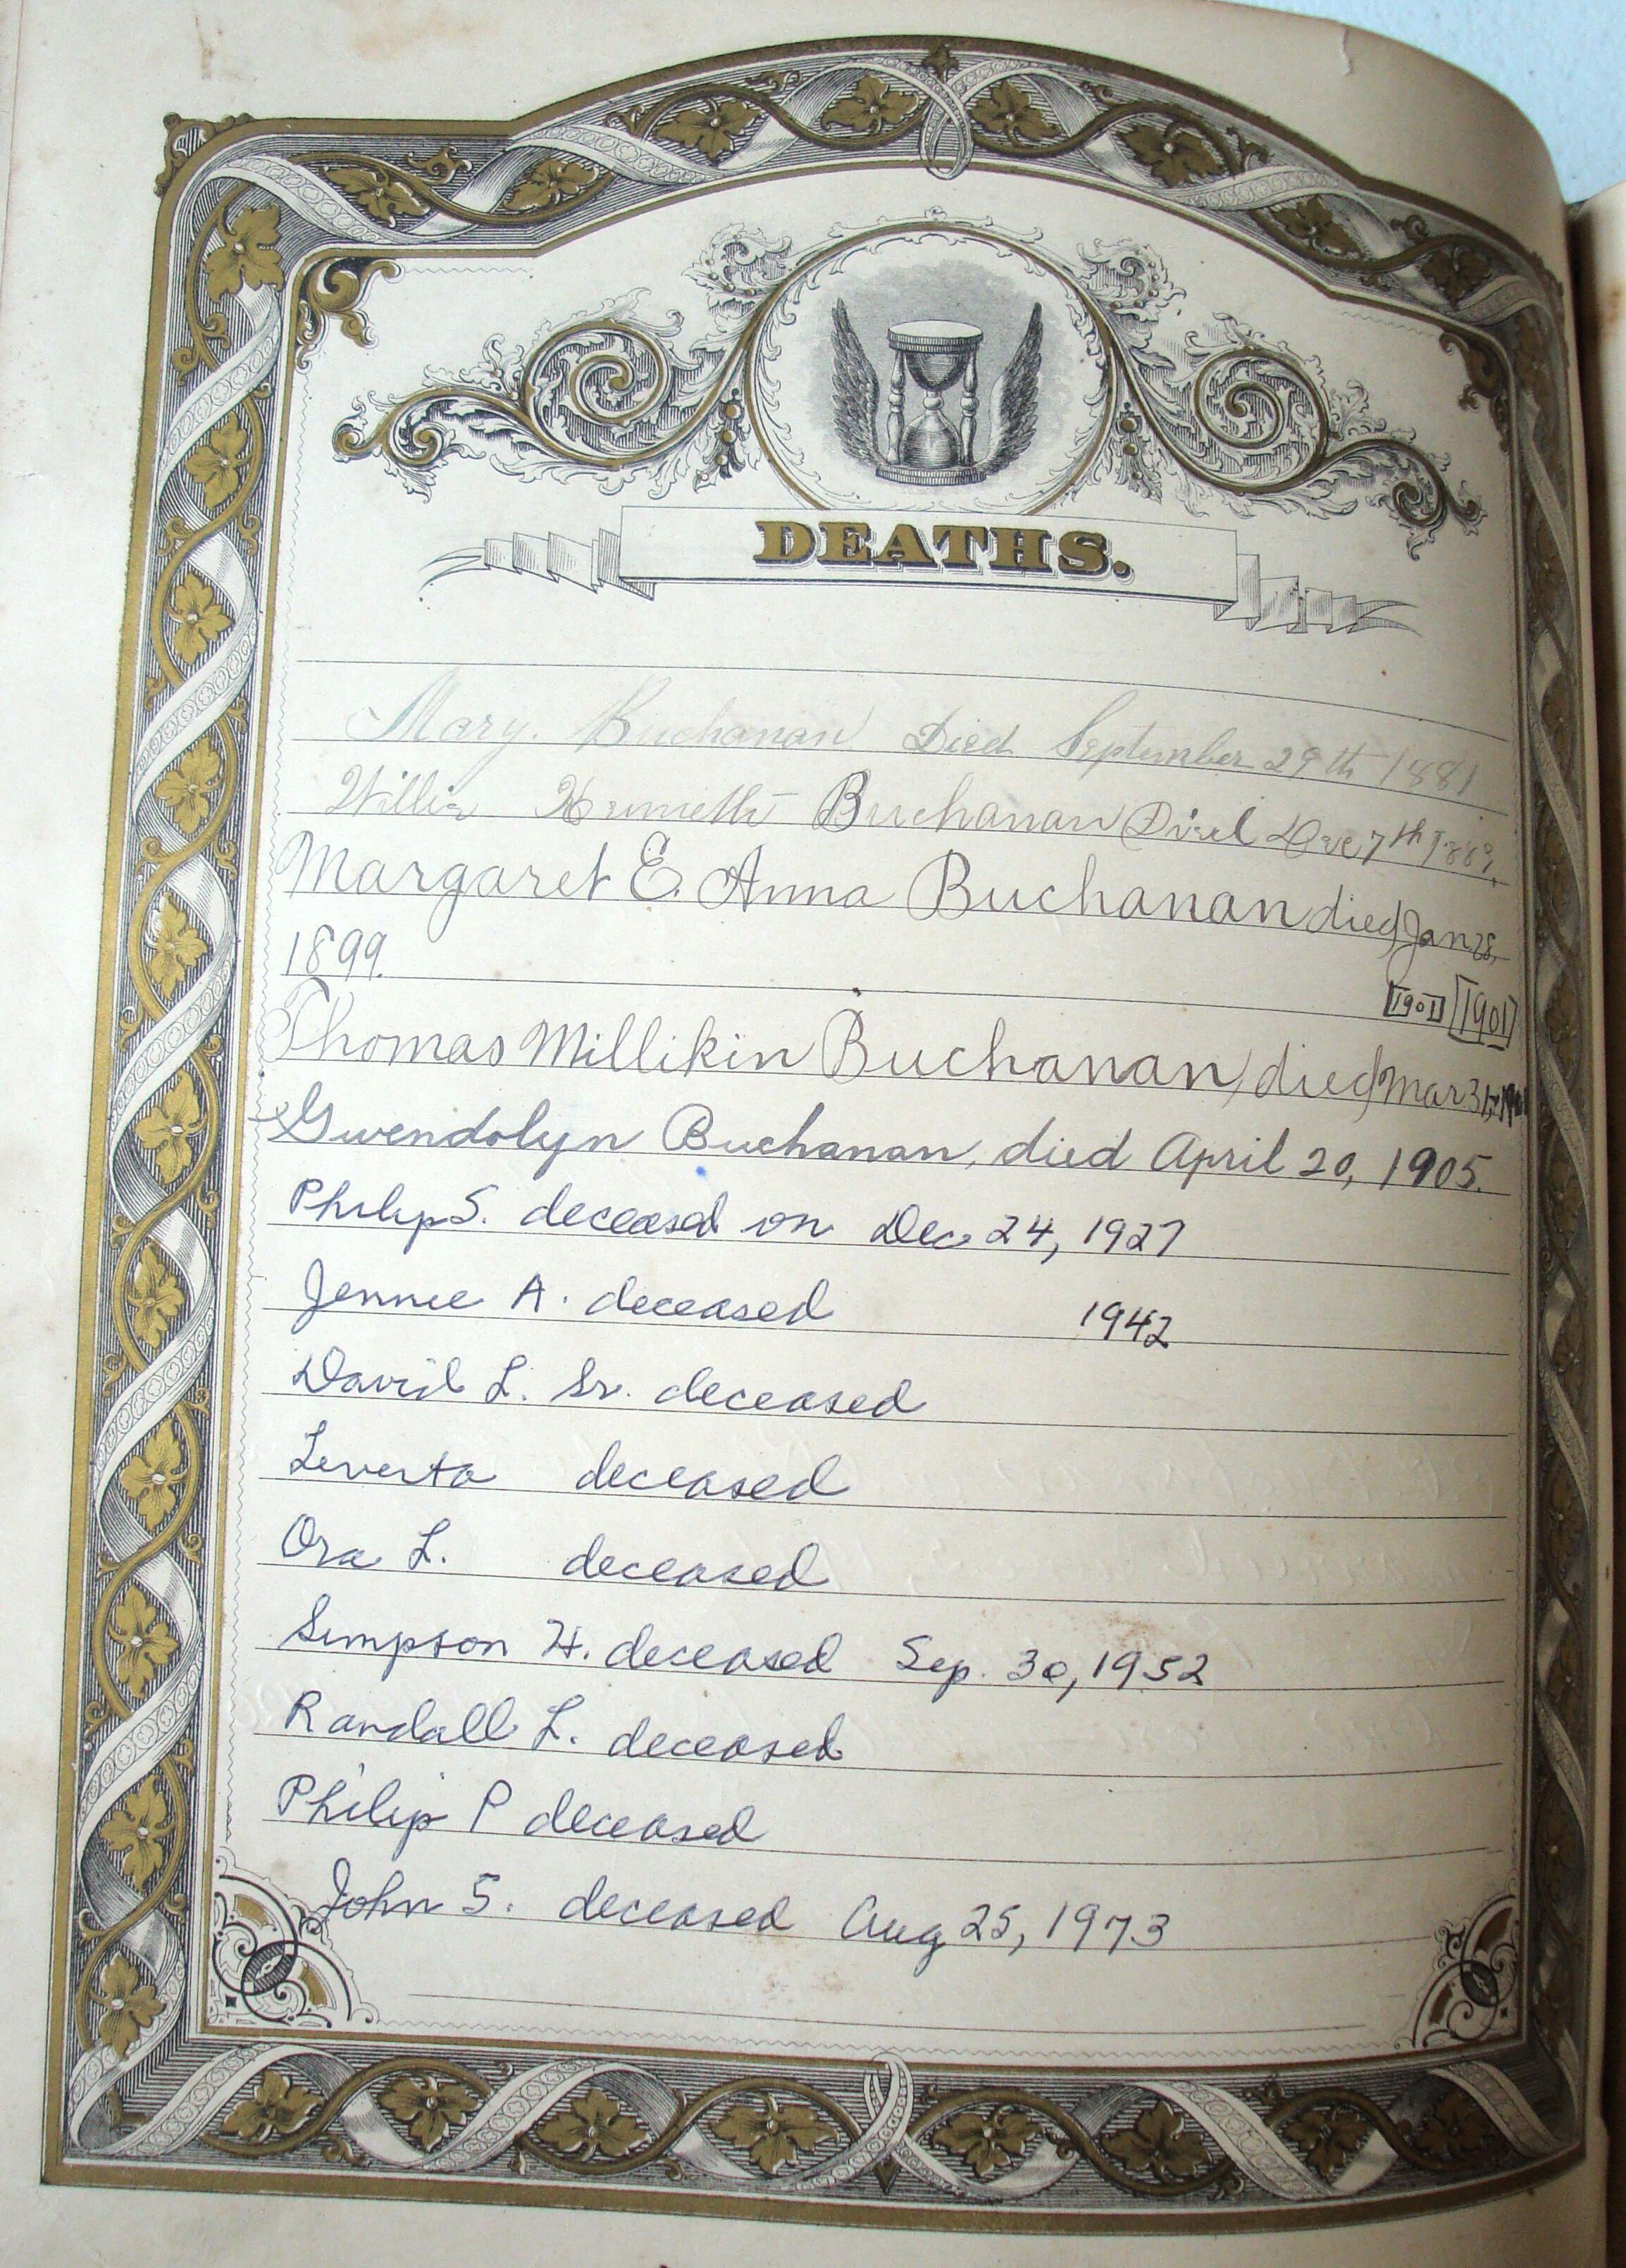 DEATHS.
Mary. Buchanan Died September 29th 1881
Willie Buchanan Died Dec 7th 1889.
Margaret E. Anna Buchanan died Jan 28,
1899.
[1901] [1901]
Thomas Millikin Buchanan, died Mar 31,
Gwendolyn Buchanan, died April 20, 1905.
Philip S. deceased on Dec 24, 1927
Jennie A. deceased 1942
David L. Sr. deceased
Leverta deceased
Ora L. deceased
Simpson H. deceased Sep. 30, 1952
Randall L. deceased
Philip P deceased
John S. deceased Aug 25, 1973